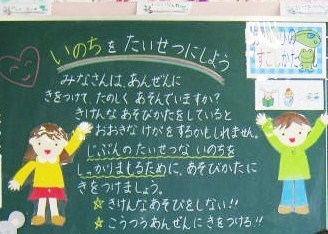 いのちを たいせつにしよう
みなさんは、あんぜんに
きをつけて、たのしく あそんでいますか？
きけんな あそびかたをしていると
おおきな けがを するかもしれません。
じぶんの たいせつな いのちを
しっかりまもるために、あそびかたに
きをつけましょう。
☆ きけんなあそびをしない!!
☆ こうつうあんぜんに きをつける!!
すごしかた